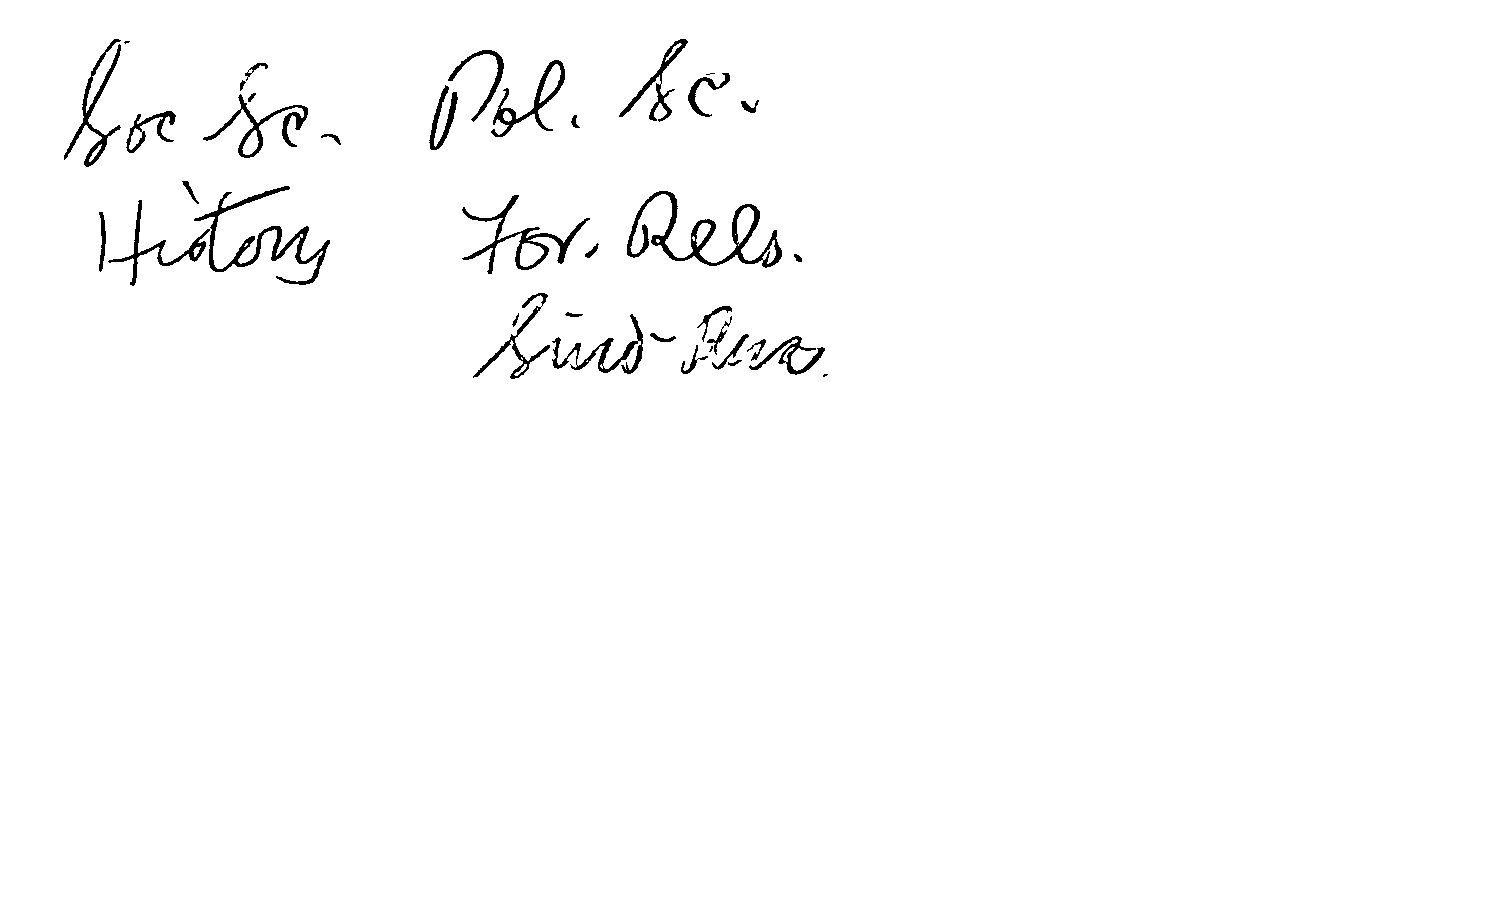 Soc Sc. Pol. Sc.
History For. Rels.
Sino-Rus.